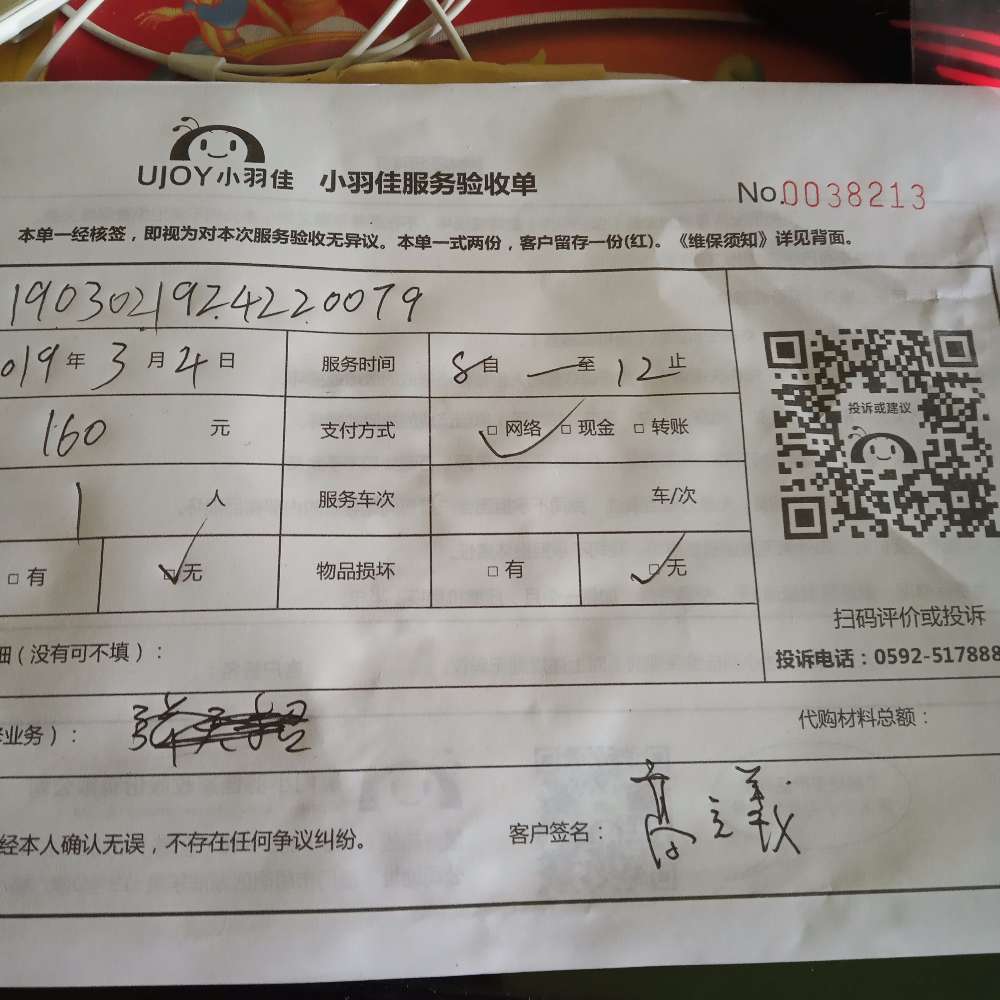 UJOY小羽佳 小羽佳服务验收单 No.0038213
本单一经核签，即视为对本次服务验收无异议。本单一式两份，客户留存一份(红)。《维保须知》详见背面。
1903021924220079
019年3月4日 服务时间 8自 — 至12止
160 元 支付方式 ☑网络 □现金 □转账
投诉或建议
1 人 服务车次 车/次
□有 ☑无 物品损坏 □有 ☑无
扫码评价或投诉
细(没有可不填)：
投诉电话：0592-517888
业务)：
代购材料总额：
经本人确认无误，不存在任何争议纠纷。 客户签名：